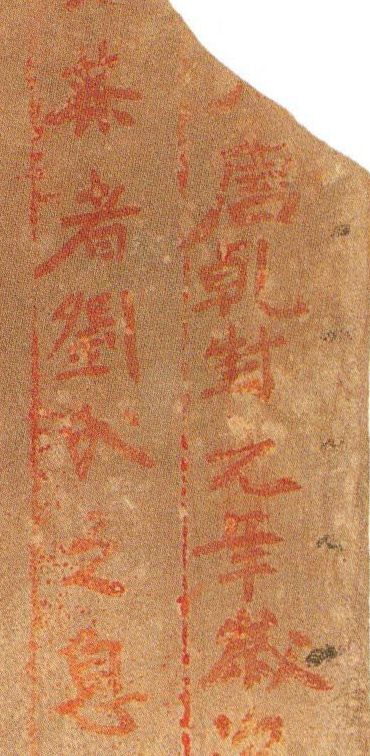 唐乾封元年歲次
者劉之息